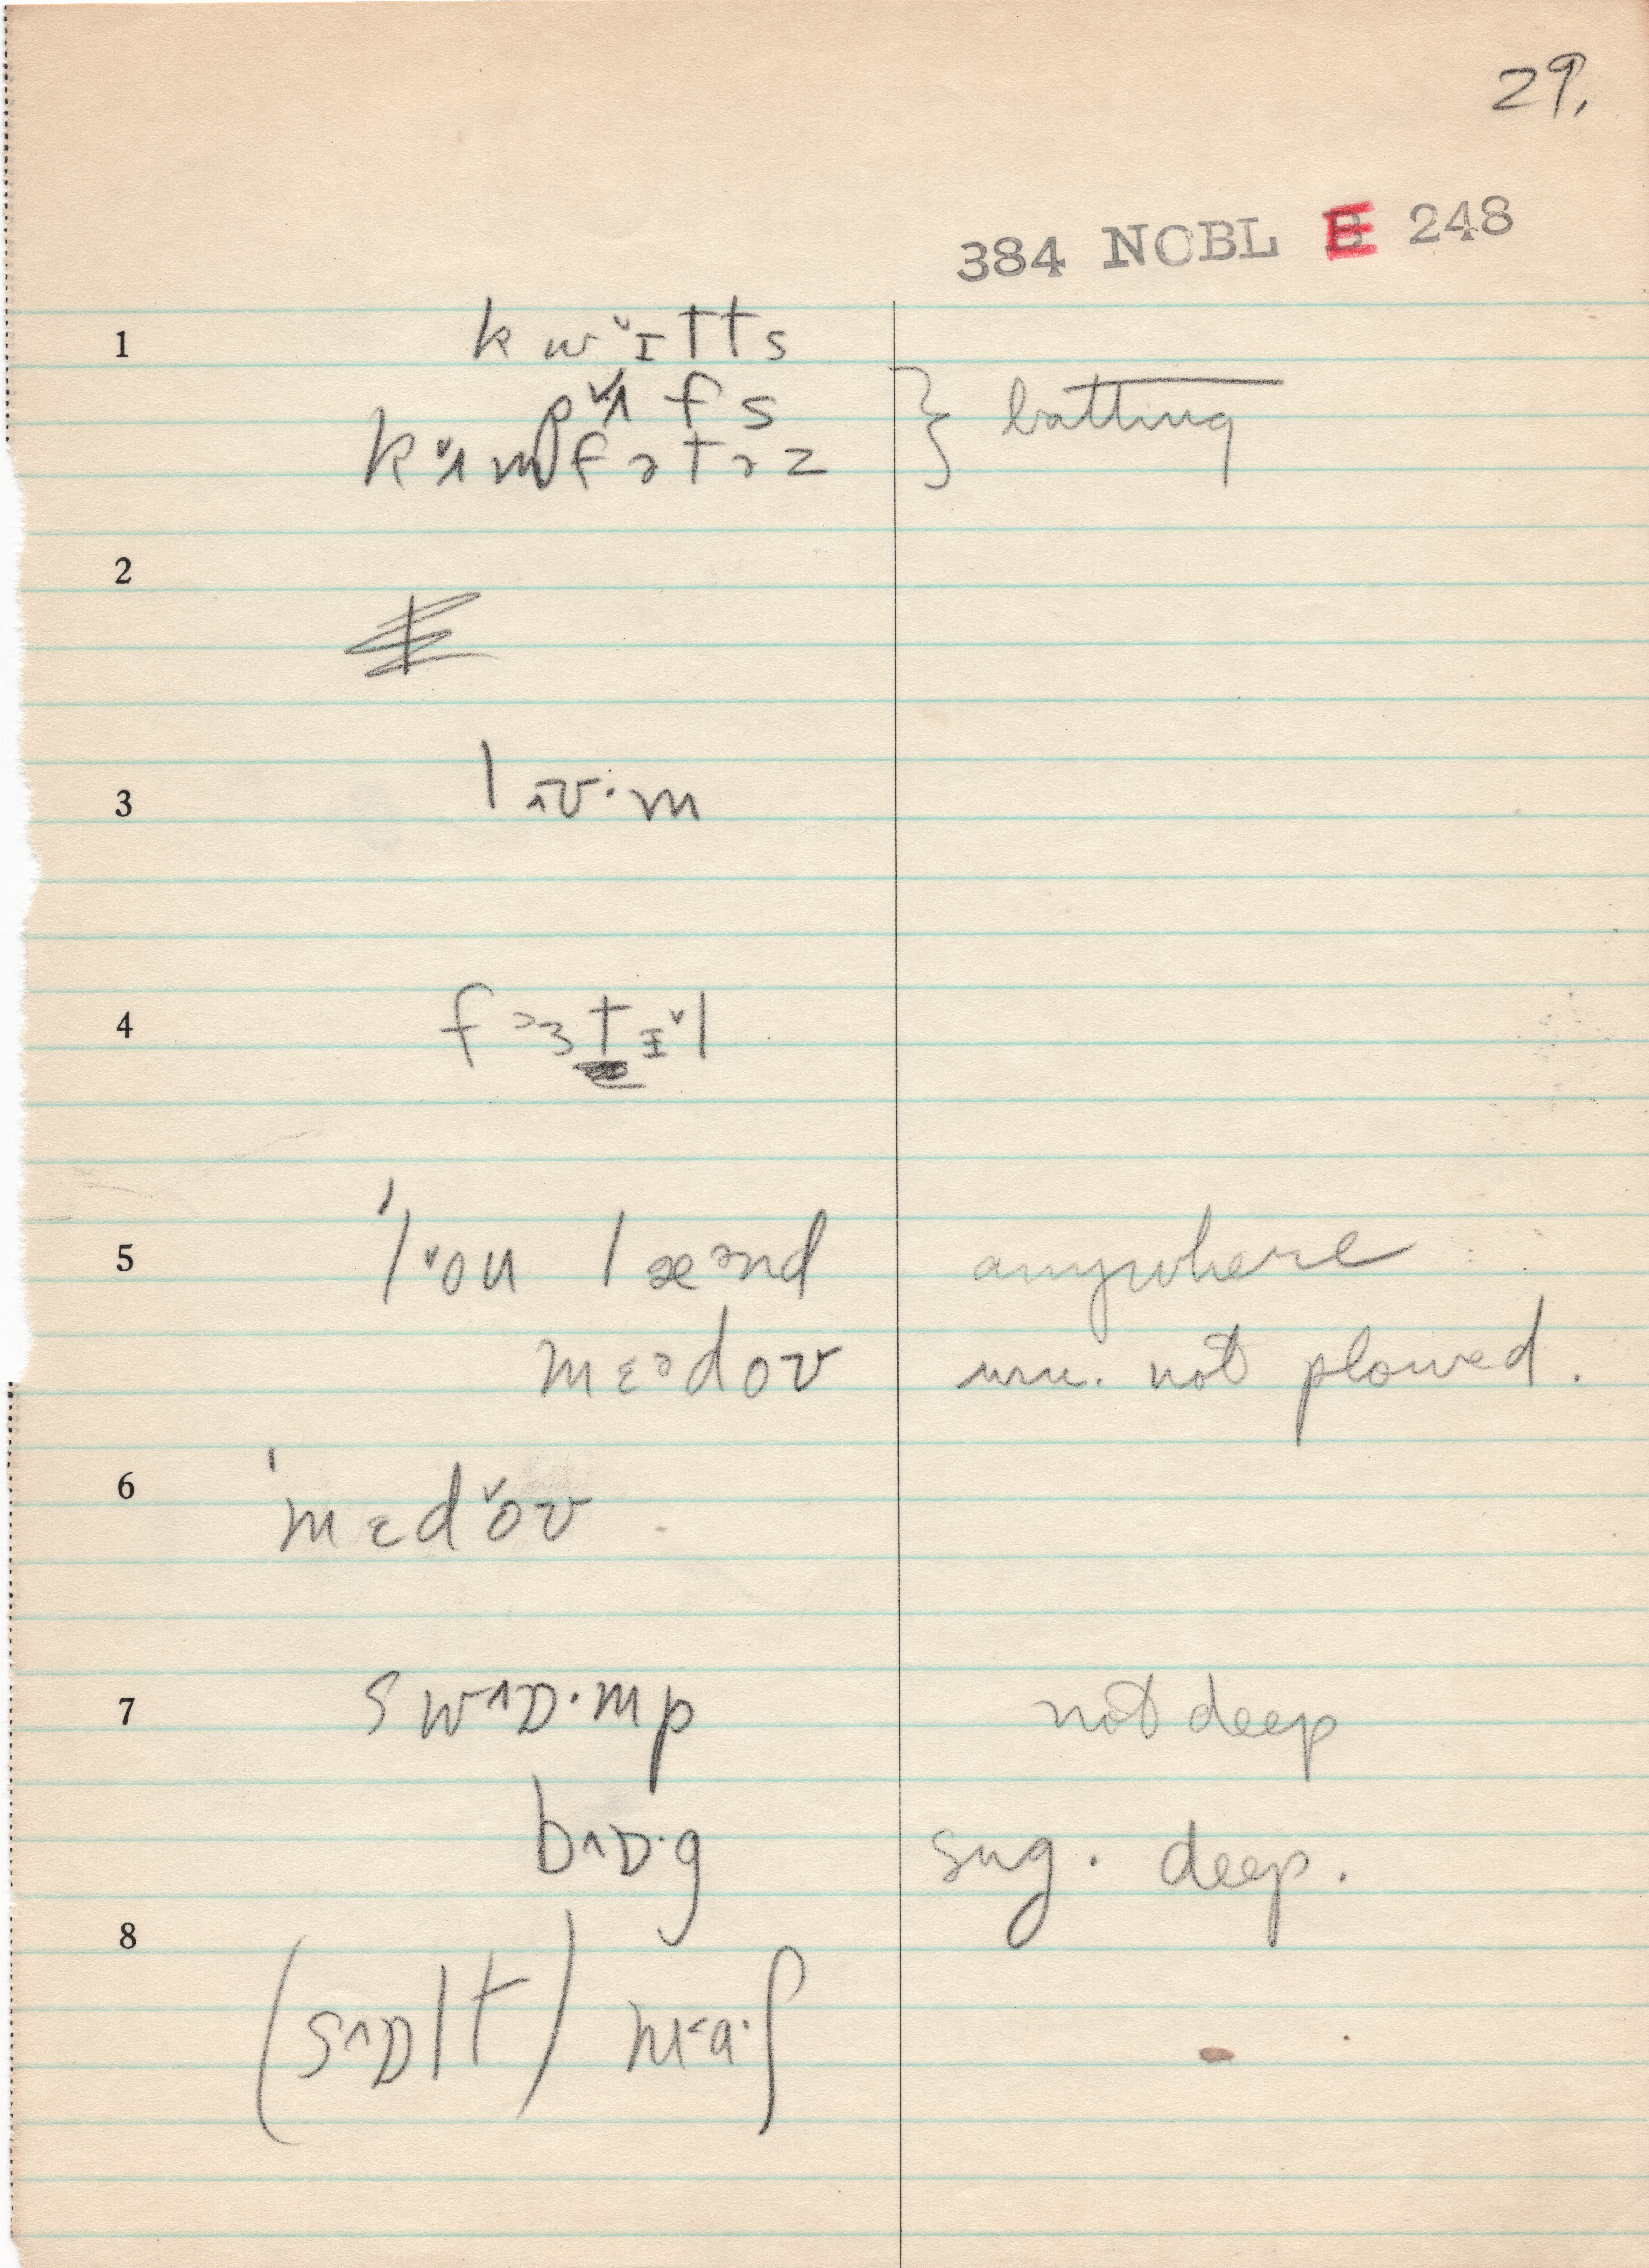 29.
384 NOBL E 248
1 kw˅ɪlts
p˅ʌfs
k˅ʌmfɚtɚz } batting
2
3 l˄ʊ·m
4 f˃ɜtɪ˅l
5 'l˅ou læ˃nd anywhere
mɛ˃doʊ unu. not plowed.
6 'mɛd˅oʊ
7 sw˄ɒ·mp not deep
b˄ɒ·g sug. deep.
8 (s˄ɒlt) m˂a·ʃ